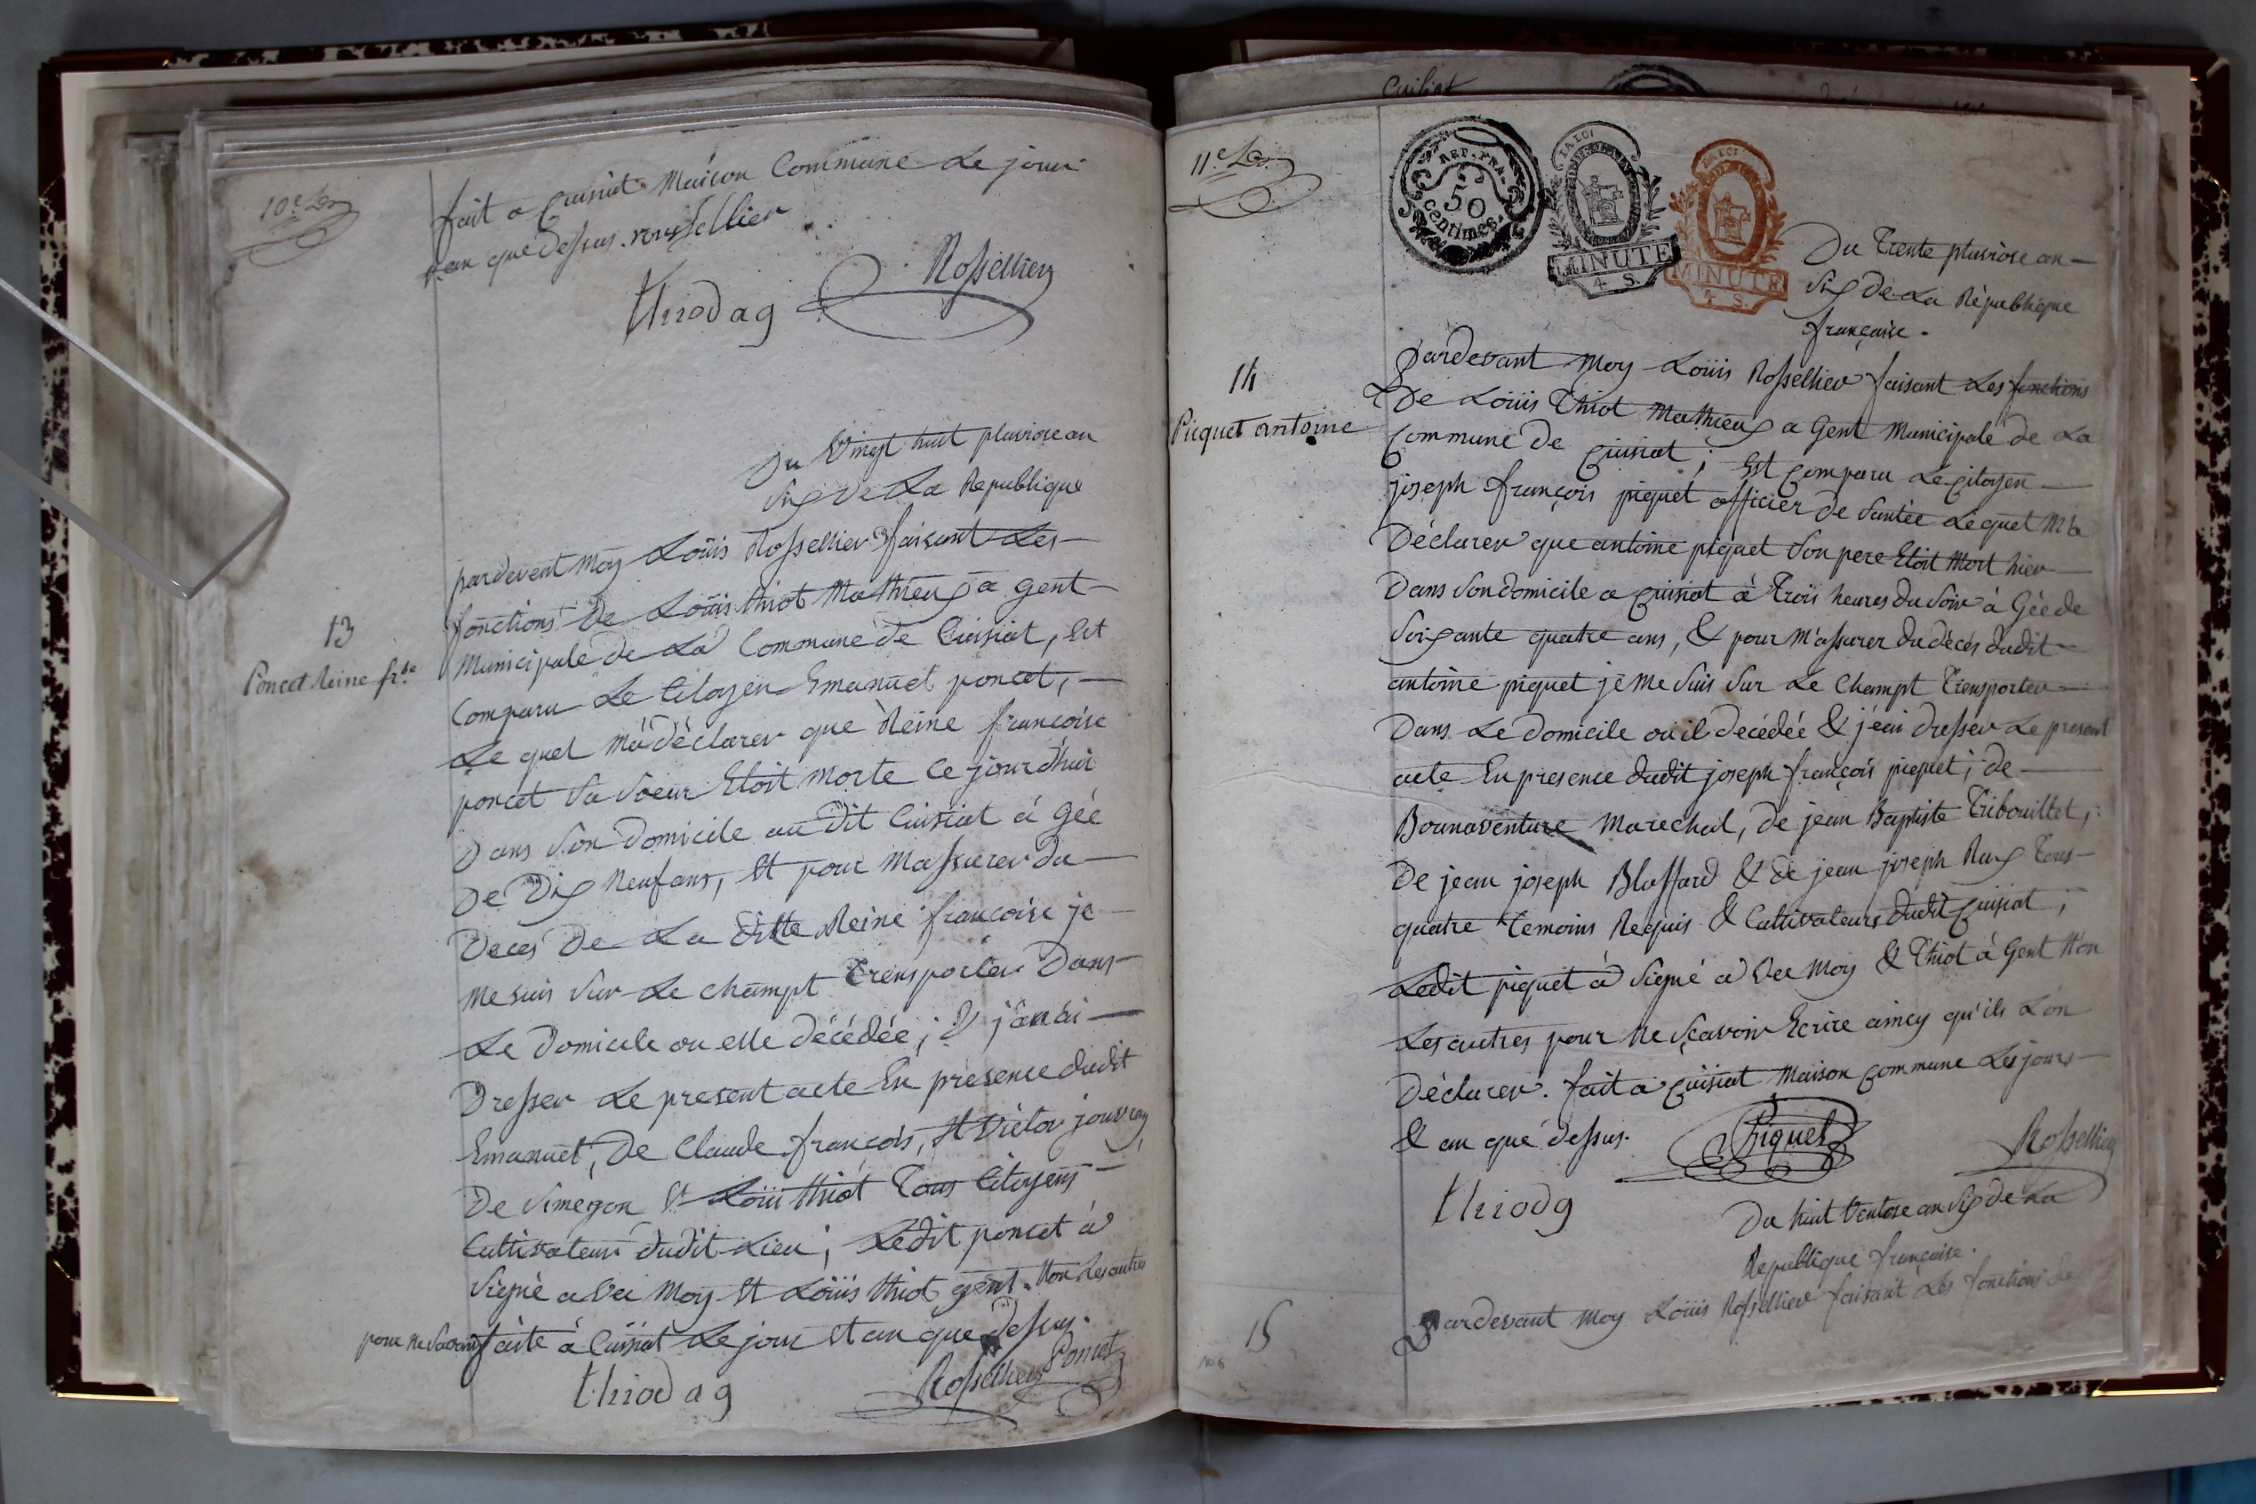 10.e
fait a Cuisiat Maison Commune Le jour
& an que dessus. rossellier
Rossellier
thiod ag
Du Vingt huit pluviose an
Six de La Republique
13
Poncet Reine fr.se
pardevent Moy Loüis Rossellier faisant Les
fonctions De Loüis thiot Mathieux a gent
Municipale de La Commune de Cuisiat, Est
Comparu Le Citoyen Emanuel poncet,
Le quel M'a déclarer que Reine francoise
poncet Sa Soeur Etoit morte Ce jourd'hui
Dans Son Domicile au dit Cuisiat á Géé
De Dix Neuf ans, Et pour Massurer du
Deces De La ditte Reine francoise je
me suis Sur Le champt Trensporter Dans
Le Domicile ou elle décédée; &
Dresser Le present acte En presence dudit
Emanuel, De Claude françois, Et Victor jouvray
De Simegon Et Loüi thiot Tous Citoyens
Cultivateurs dudit Lieu; Ledit poncet á
Signé a Vec Moy Et Loüis thiot agent. Non Les autres
pour ne Savoir faite á Cuisiat Le jour Et an que Dessus.
thiod ag
Rossellier
Poncet
Cuisiat
11.e
REP. FRA.
50
centimes.
LA LOI
MINUTE
4 S.
LA LOI
MINUTE
4 S.
Du Trente pluviose an
Six de La République
française.
14
Picquet antoine
Pardevant Moy Loüis Rossellier faisant Les fonctions
De Loüis Thiot Mathieux a Gent Municipale de La
Commune De Cuisiat; Est Comparu Le Citoyen
joseph françois piquet officier de Santée Lequel M'a
Déclarer que antoine piquet Son pere Etoit Mort hier
Dans Son domicile a Cuisiat à Trois heures du Soir à Gée de
Soixante quatre ans, & pour m'assurer du décès dudit
antoine piquet je me Suis Sur Le Champt Trensporter
Dans Le domicile ou il decédée & j'eai dresser Le present
acte En presence dudit joseph françois piquet; de
Bonnaventure Marechal, de jean Baptiste Tribouillet;
De jean joseph Blassard & de jean joseph Rux Tous
quatre Temoins Requis & Cultivateurs dudit Cuisiat;
Ledit piquet à Signé a Vec Moy & Thiot à Gent Non
Les autres pour Ne Sçavoir Ecrire aincy qu'ils L'on
Déclarer. fait a Cuisiat Maison Commune Les jours
& an que dessus.
Piquet
Rossellier
thiodg
Du huit Ventose an Six de La
Republique française.
15
Pardevant Moy Loüis Rossellier faisant Les fonctions de